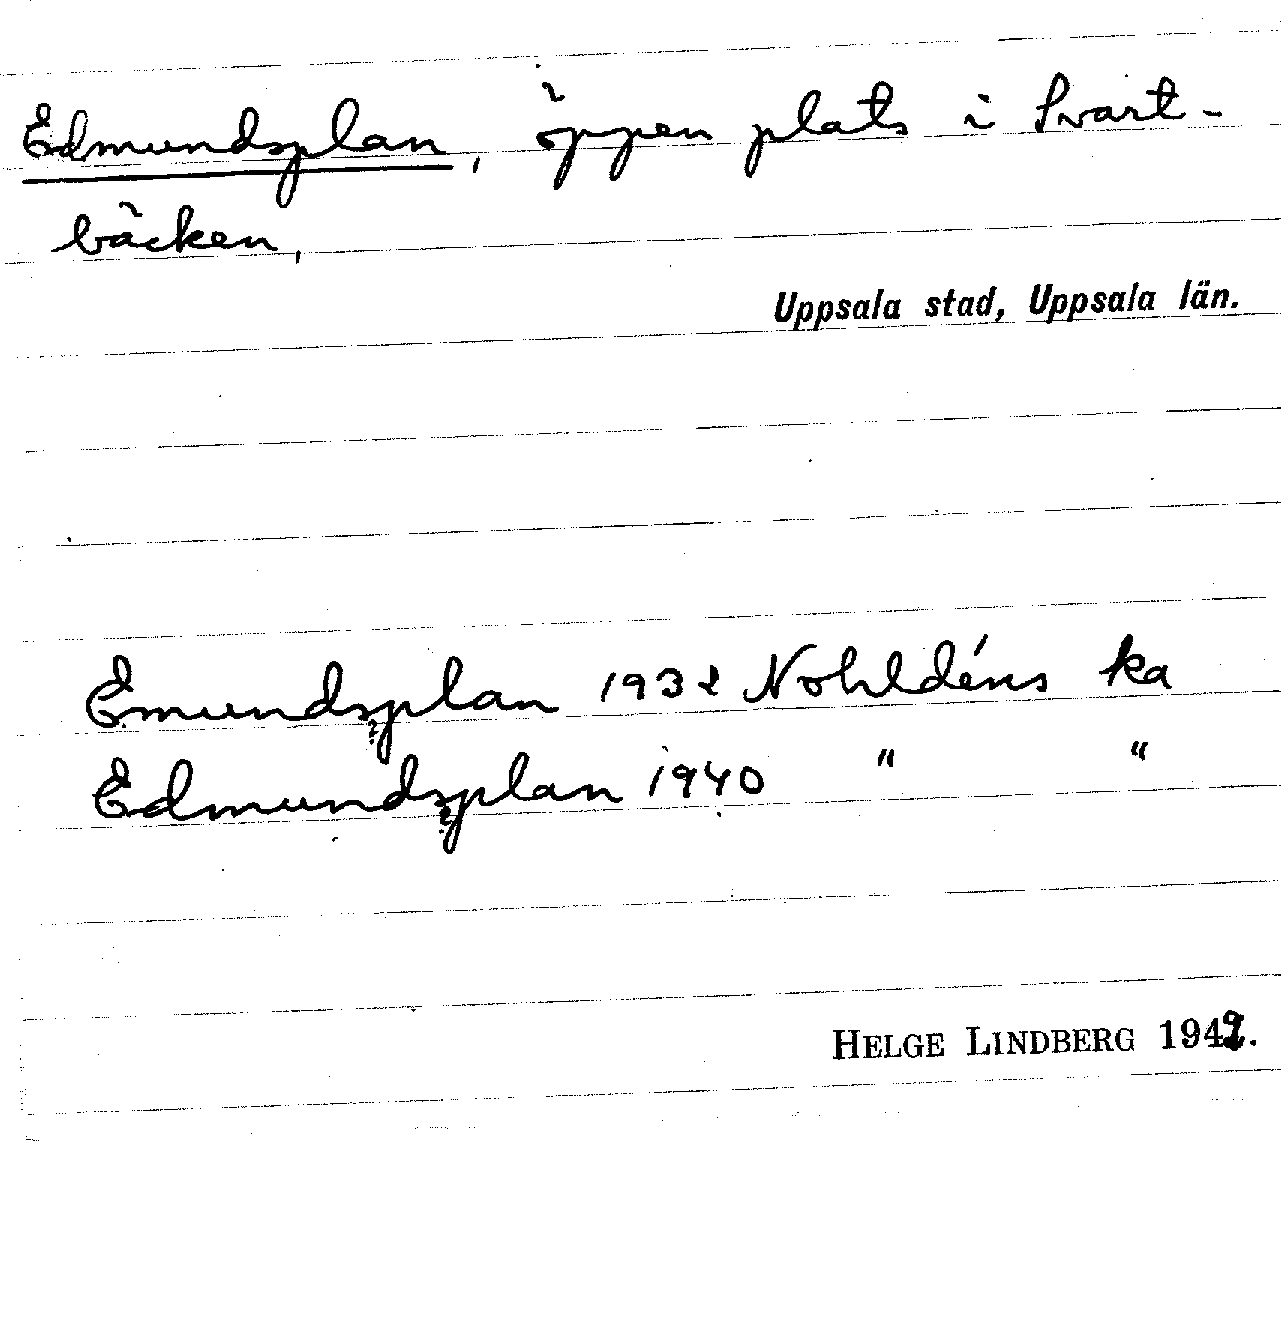 Edmundsplan, öppen plats i Svart-
bäcken,
Uppsala stad, Uppsala län.
Emundsplan 1932 Nohldéns ka
Edmundsplan 1940 " "
HELGE LINDBERG 1949.